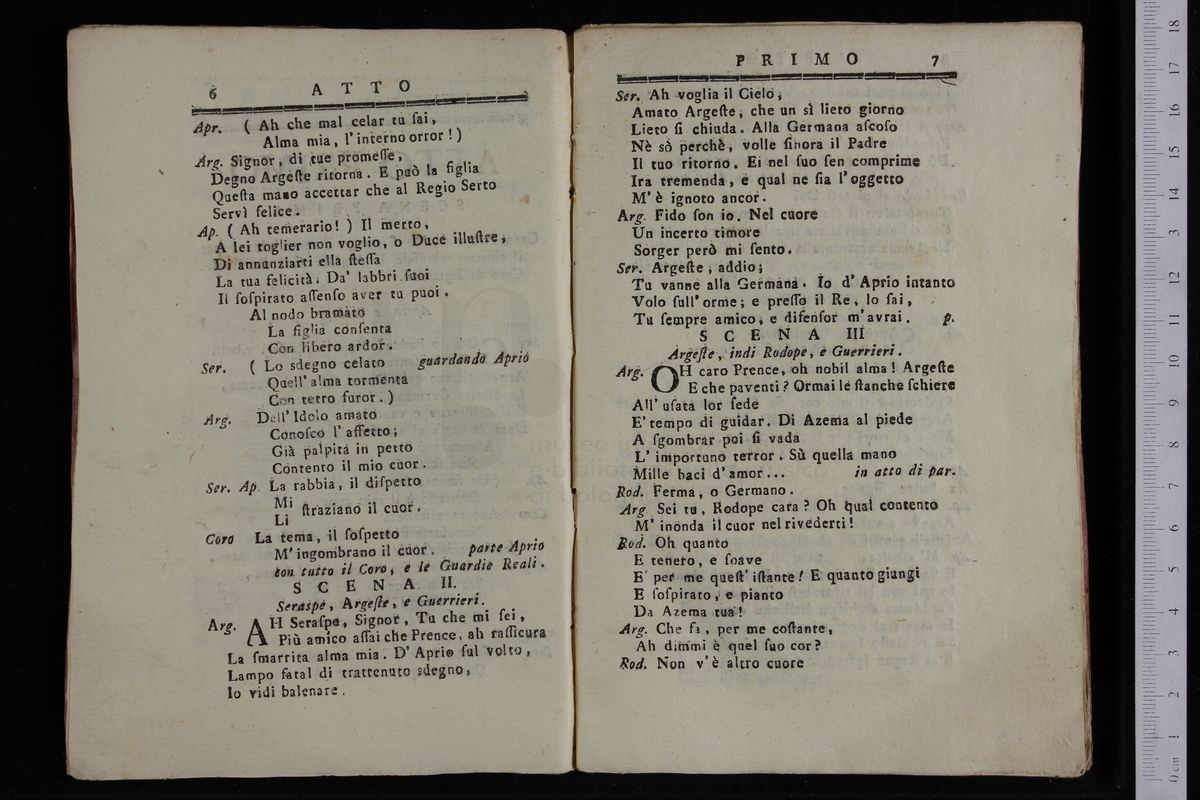 6 ATTO
Apr. ( Ah che mal celar tu ſai,
Alma mia, l'interno orror! )
Arg. Signor, di tue promeſſe,
Degno Argeſte ritorna. E può la figlia
Queſta mano accettar che al Regio Serto
Servì felice.
Ap. ( Ah temerario! ) Il merto,
A lei toglier non voglio, o Duce illuſtre,
Di annunziarti ella ſteſſa
La tua felicità. Da' labbri ſuoi
Il ſoſpirato aſſenſo aver tu puoi.
Al nodo bramato
La figlia conſenta
Con libero ardor.
Ser. ( Lo sdegno celato guardando Aprio
Quell' alma tormenta
Con tetro furor. )
Arg. Dell' Idolo amato
Conoſco l' affetto;
Già palpita in petto
Contento il mio cuor.
Ser. Ap. La rabbia, il diſpetto
Mi
ſtraziano il cuor.
Li
Coro La tema, il ſoſpetto
M' ingombrano il cuor. parte Aprio
con tutto il Coro, e le Guardie Reali.
SCENA II.
Seraspe, Argeſte, e Guerrieri.
Arg. AH Seraſpe, Signor, Tu che mi ſei,
Più amico aſſai che Prence, ah raſſicura
La ſmarrita alma mia. D' Aprio ſul volto,
Lampo fatal di trattenuto sdegno,
Io vidi balenare.
PRIMO 7
Ser. Ah voglia il Cielo,
Amato Argeſte, che un sì lieto giorno
Lieto ſi chiuda. Alla Germana aſcoſo
Nè sò perchè, volle ſinora il Padre
Il tuo ritorno. Ei nel ſuo ſen comprime
Ira tremenda, e qual ne ſia l'oggetto
M' è ignoto ancor.
Arg. Fido ſon io. Nel cuore
Un incerto timore
Sorger però mi ſento.
Ser. Argeſte, addio;
Tu vanne alla Germana. Io d' Aprio intanto
Volo ſull' orme; e preſſo il Re, lo ſai,
Tu ſempre amico, e difenſor m'avrai. p.
SCENA III
Argeſte, indi Rodope, e Guerrieri.
Arg. OH caro Prence, oh nobil alma! Argeſte
E che paventi? Ormai le ſtanche ſchiere
All' uſata lor ſede
E' tempo di guidar. Di Azema al piede
A ſgombrar poi ſi vada
L' importuno terror. Sù quella mano
Mille baci d' amor... in atto di par.
Rod. Ferma, o Germano.
Arg Sei tu, Rodope cara? Oh qual contento
M' inonda il cuor nel rivederti!
Rod. Oh quanto
E tenero, e ſoave
E' per me queſt' iſtante! E quanto giungi
E ſoſpirato, e pianto
Da Azema tua!
Arg. Che fa, per me coſtante,
Ah dimmi è quel ſuo cor?
Rod. Non v'è altro cuore